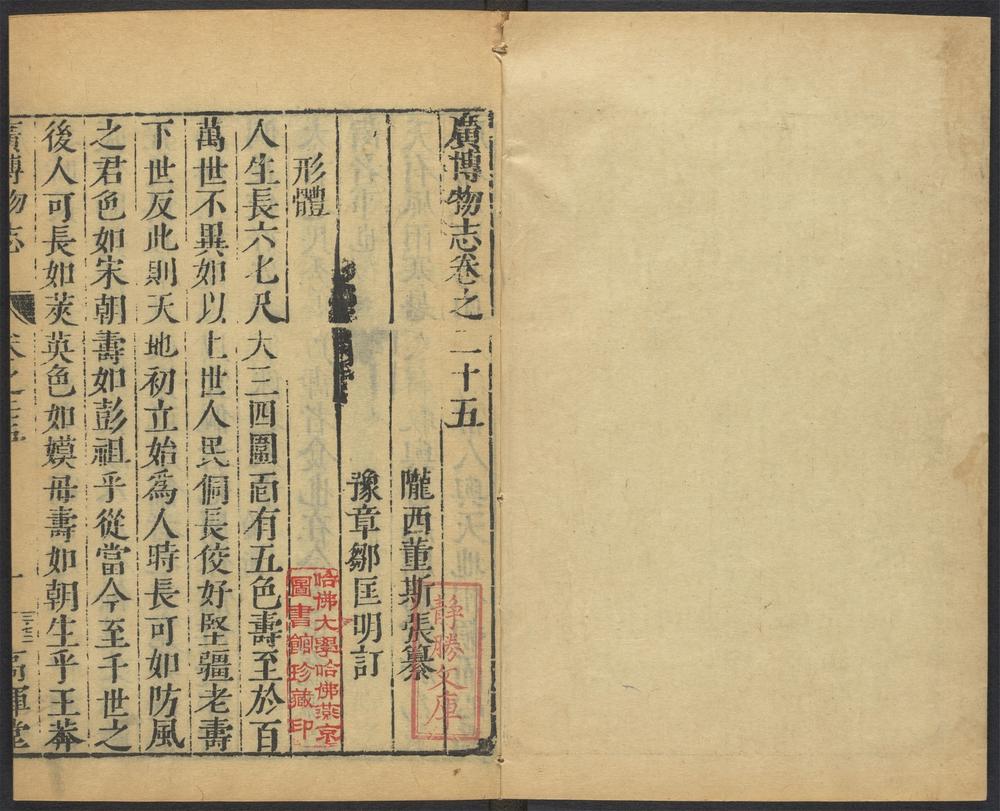 廣博物志卷之二十五
隴西董斯張纂
豫章鄒匡明訂
形體
人生長六七尺大三四圍面有五色壽至於百
萬世不異如以上世人民侗長佼好堅疆老壽
下世反此則天地初立始爲人時長可如防風
之君色如宋朝壽如彭祖乎從當今至千世之
後人可長如莢英色如嫫母壽如朝生乎王莽
廣博物志
卷之二十五
一
高暉堂
靜勝文庫
哈佛大學哈佛燕京
圖書館珍藏印